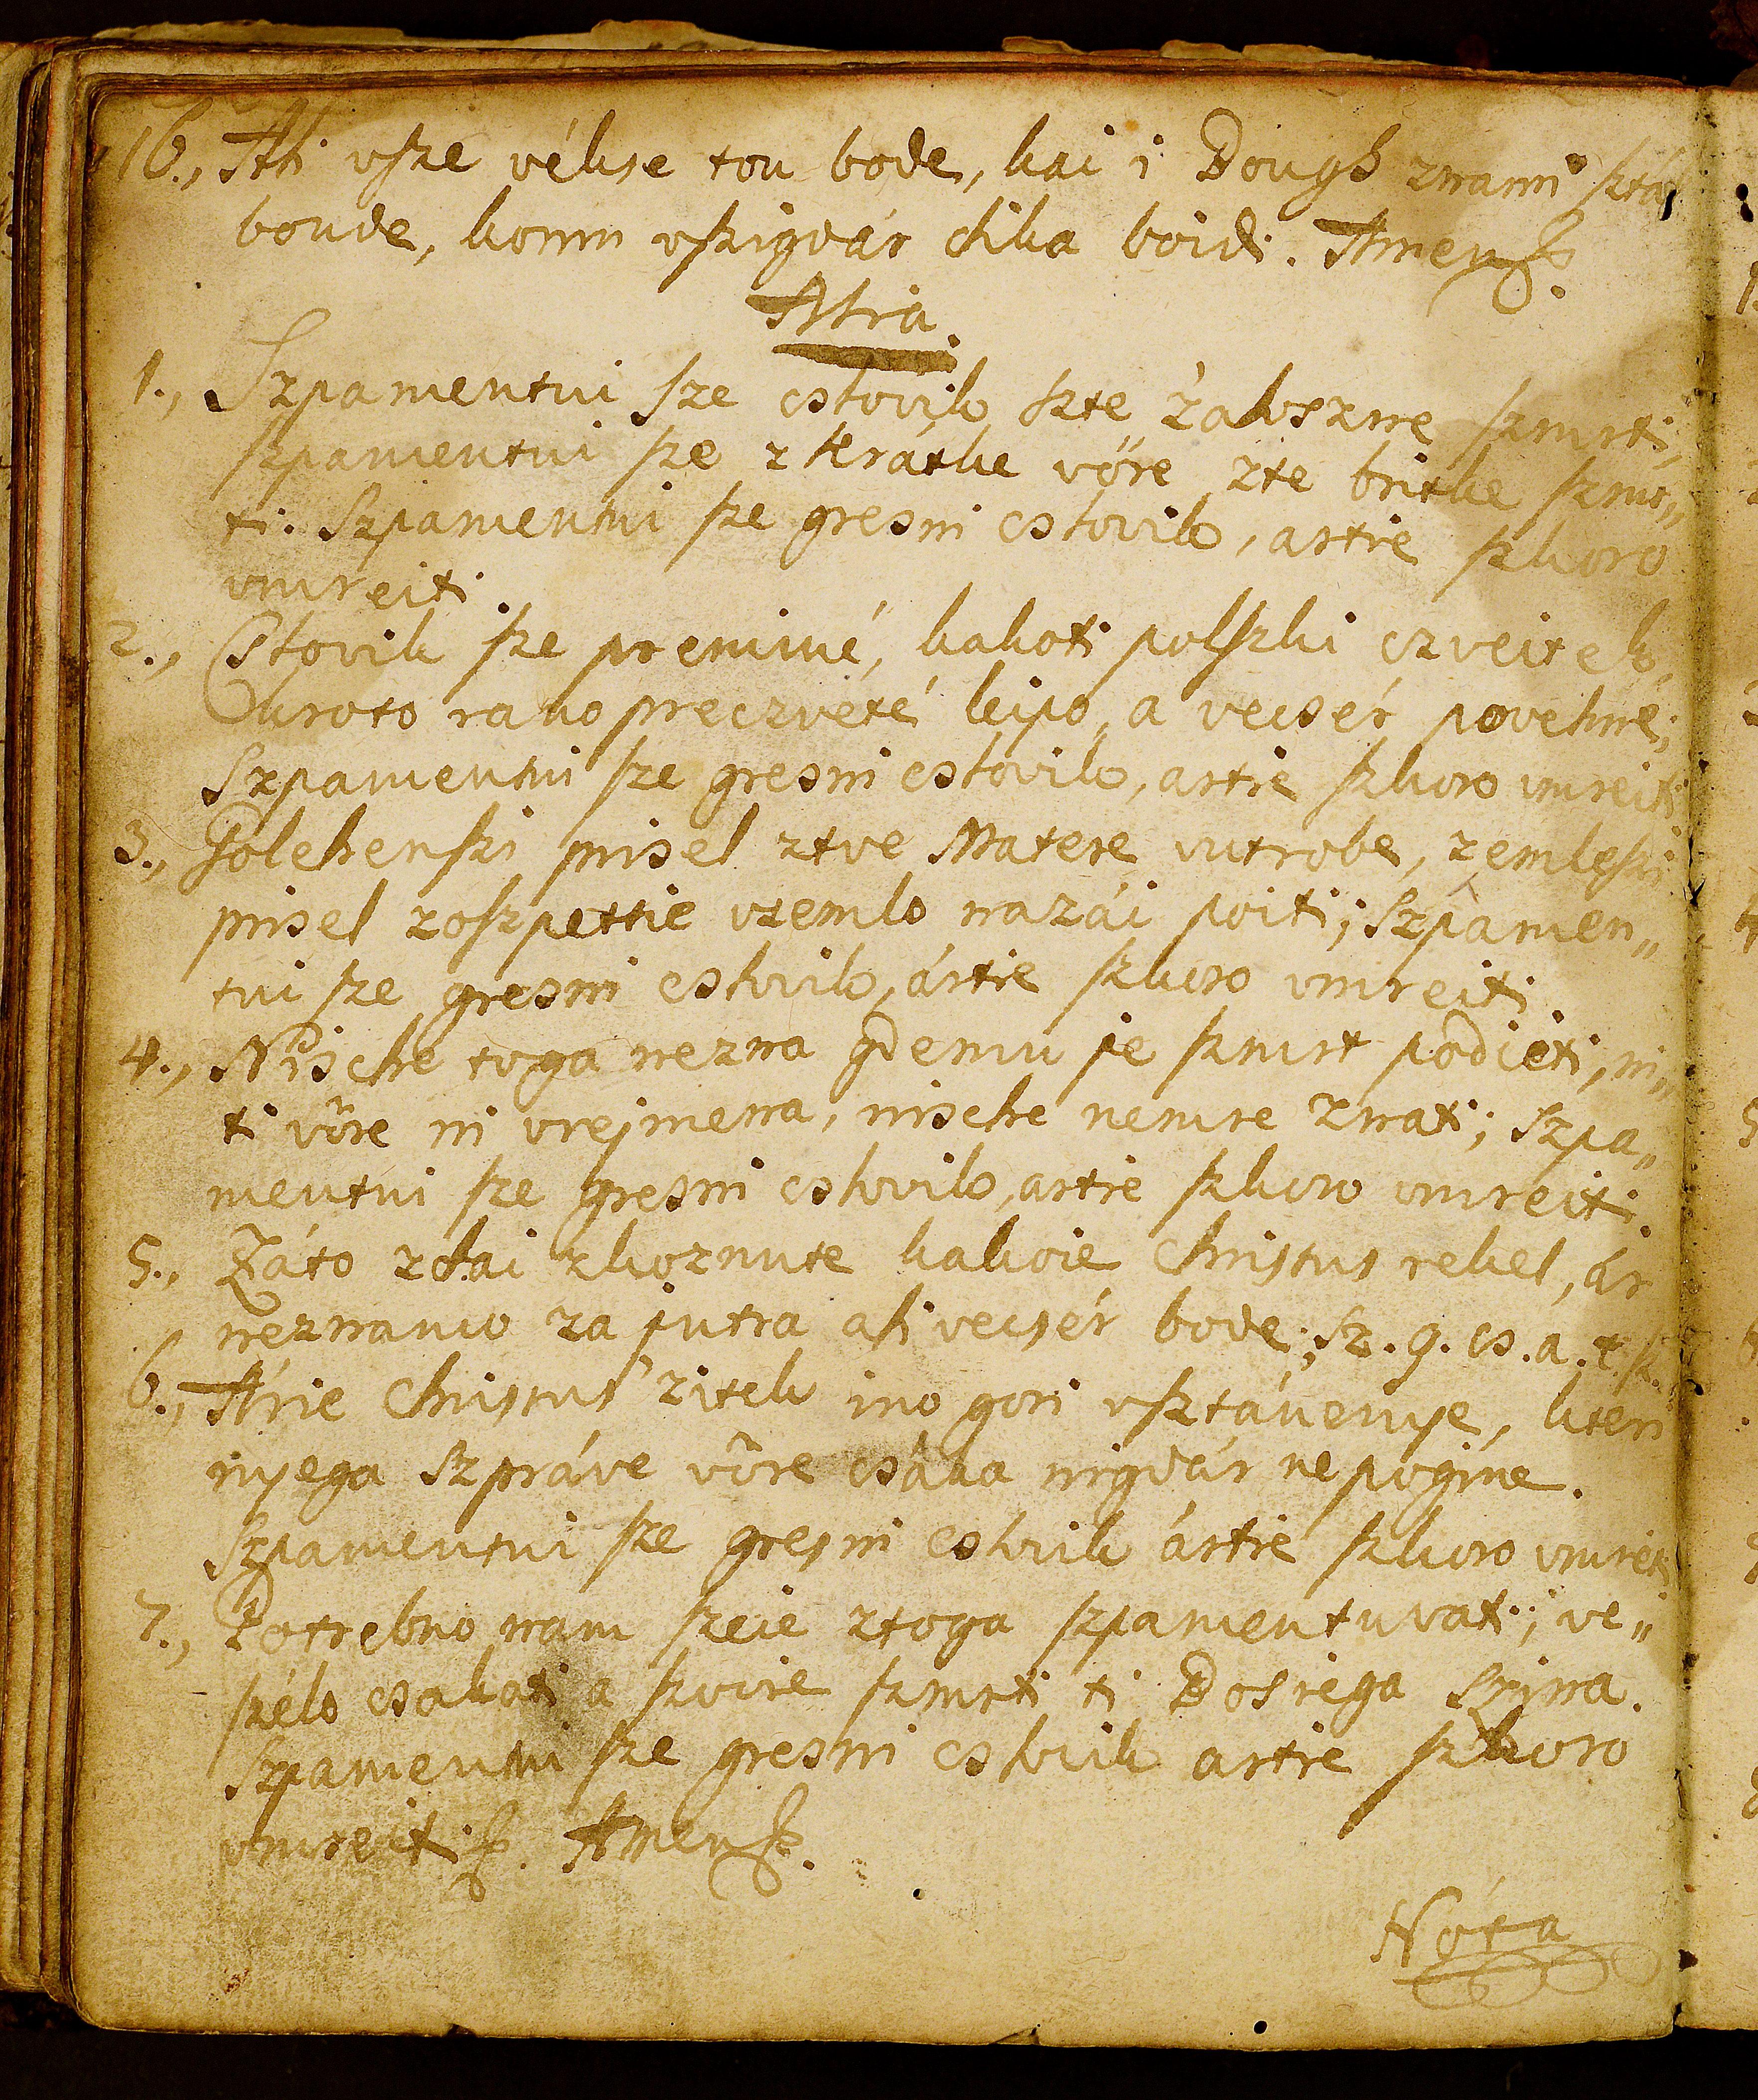 16., Ali vsze vékse tou bode, kai i Dough znami sztál
boude, komu vszigdár dika boidi. Amen.
Alia
1., Szpamentui sze cslovik szte 'zaloszne szmrti,
szpamentui sze z kratke vöre zte britke szmr„
ti. Szpamentui sze gresni cslovik, artie szkoro
vmreiti.
2., Cslovik sze premine, kakoti polszki czveitek,
kroto rano preczvété leipo, a vecsér povehne;
Szpamentui sze gresni cslovik, artie szkoro vmreiti
3., Golekenszi prisel ztve Matere vtrobe, zemleszi
prisel zoszpettie vzemlo nazái poiti; Szpamen„
tui sze gresni cslovik, ártie szkoro vmreiti.
4., Nische toga nezna gdemu je szmrt podjéti, ni„
ti vöre ni vrejmena, nische nemre znati; Szpa„
mentui sze gresni cslovik, artie szkoro vmreiti.
5., Záto zdai zkoznute kakoie Christus rekel, ár
neznamo za jutra ali vecsér bode; sz. g. cs. a. t. sz.
6., Árie Christus 'zitek ino gori vsztávenye, kteri
nyega Szpráve vöre csáka nigdár ne pogine.
Szpamentui sze gresni cslovik ártie szkoro vmreti
7., Potrebno nam szeie ztoga szpamentuvati; ve„
szélo csakati a szvoie szmrti ti Bosiega Szina.
Szpamentui sze gresni cslovik artie szkoro
vmreiti. Amen.
Nóta